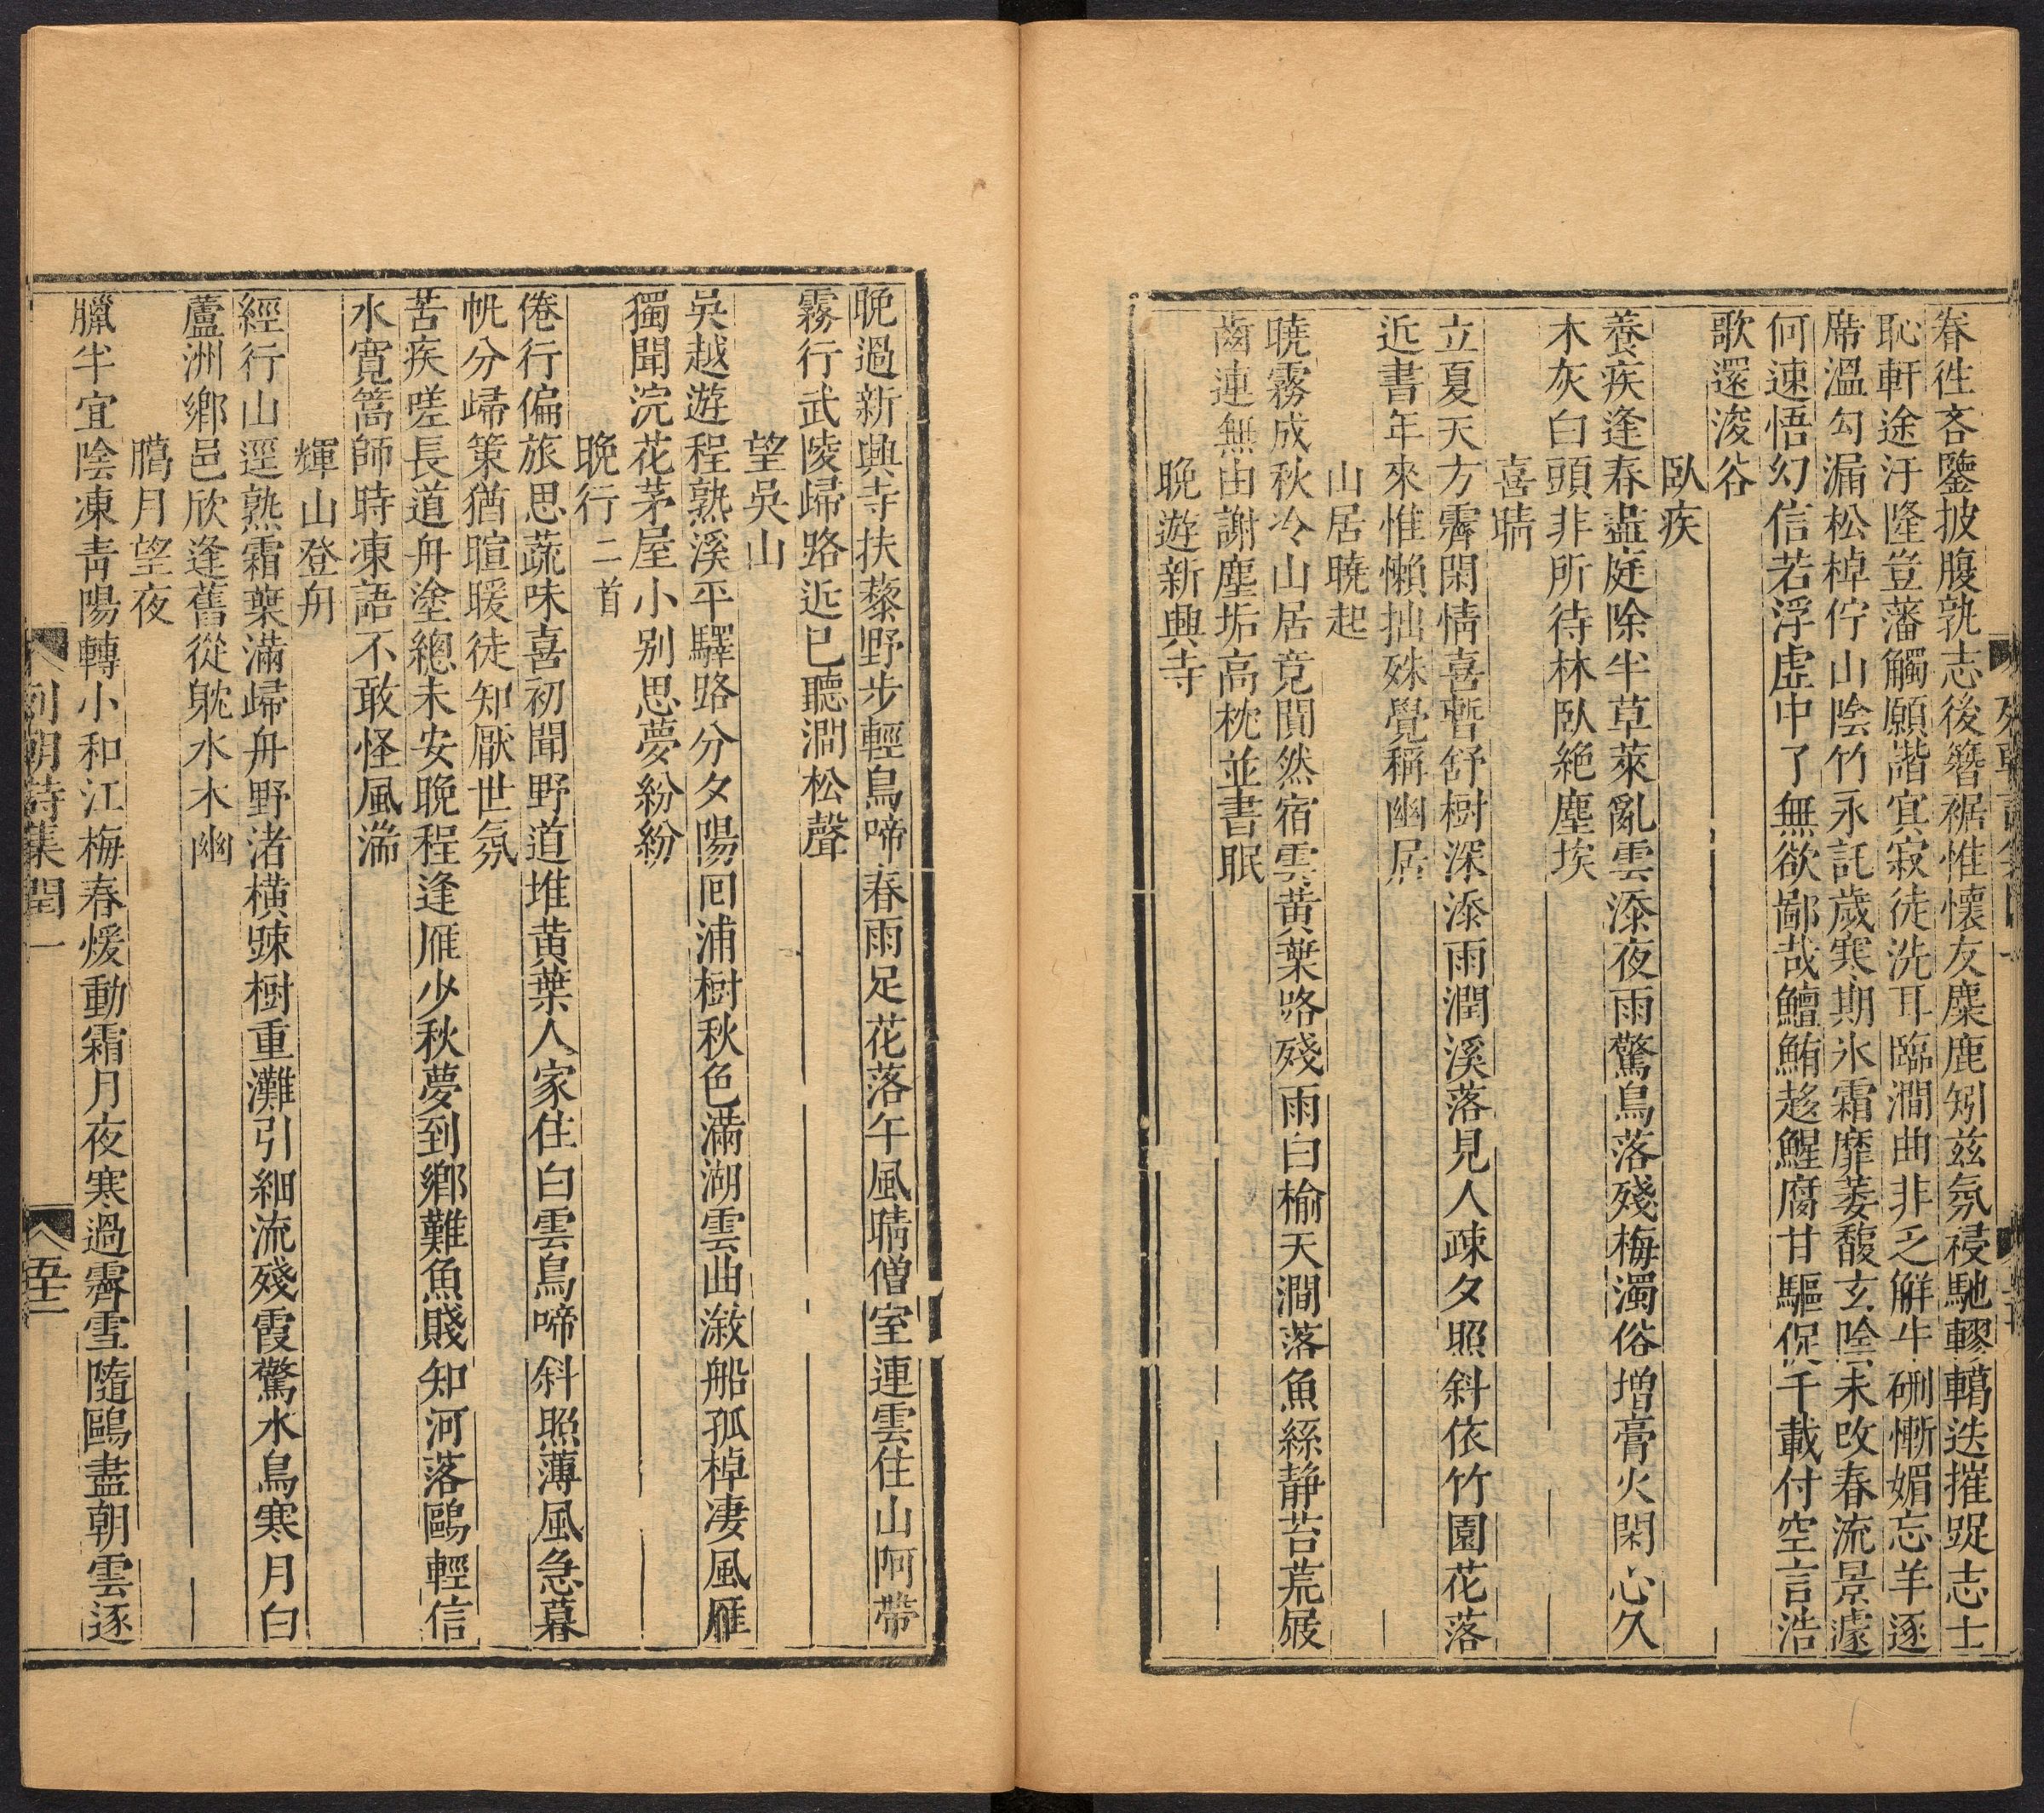 眷徃吝鑒披腹孰志後簪裾惟懷友麋鹿矧兹氛祲馳轇轕迭摧踀志士
恥軒途汙隆豈藩觸願諧寘寂徒洗耳臨澗曲非乏觧牛硎慚媚忘羊逐
席溫勾漏松棹佇山陰竹永託歲寒期氷霜靡萎馥玄陰未改春流景遽
何速悟幻信若浮虛中了無欲鄙哉鱣鮪趍鯹腐甘驅促千載付空言浩
歌還浚谷
臥疾
養疾逢春盡庭除半草萊亂雲添夜雨驚鳥落殘梅濁俗增膏火閑心久
木灰白頭非所待林臥絶塵埃
喜晴
立夏天方霽閑情喜暫舒樹深添雨潤溪落見人疎夕照斜依竹園花落
近書年來惟懶拙殊覺稱幽居
山居曉起
曉霧成秋冷山居竟閴然宿雲黄葉路殘雨白榆天澗落魚絲静苔荒屐
齒連無由謝塵垢高枕並書眠
晚遊新興寺
晚過新興寺扶藜野步輕鳥啼春雨足花落午風晴僧室連雲住山阿帶
霧行武陵歸路近已聽澗松聲
望吳山
吳越遊程熟溪平驛路分夕陽囘浦樹秋色滿湖雲曲漵船孤棹凄風雁
獨聞浣花茅屋小别思夢紛紛
晚行二首
倦行偏旅思蔬味喜初聞野道堆黄葉人家住白雲鳥啼斜照薄風急暮
帆分歸策猶暄暖徒知厭世氛
苦疾嗟長道舟塗總未安晚程逢雁少秋夢到鄉難魚賤知河落鷗輕信
水寬篙師時凍語不敢怪風湍
輝山登舟
經行山逕熟霜葉滿歸舟野渚橫踈樹重灘引細流殘霞驚水鳥寒月白
蘆洲鄉邑欣逢舊從躭水木幽
臈月望夜
臘半宜陰凍青陽轉小和江梅春煖動霜月夜寒過霽雪隨鷗盡朝雲逐
列朝詩集閏一